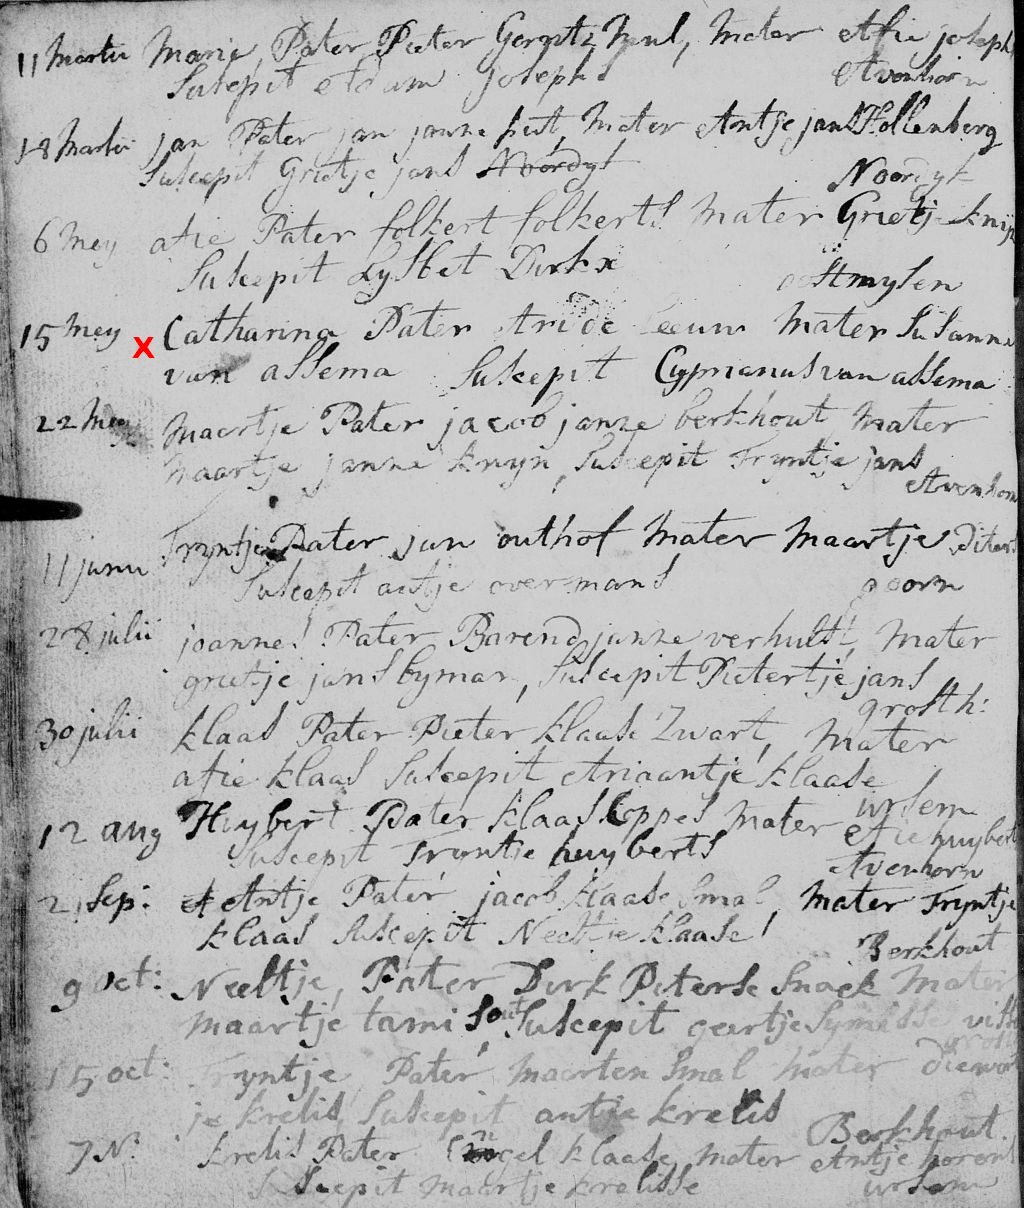 11 Martii Marie, Pater Pieter Gerritz Mul, Mater Afie josephs
Suscepit Adam josephs Avenhorn
18 Martii jan Pater jan janne put, Mater Antje jans Hollenberg
Suscepit Grietje jans Noordyk Noordyk
6 Mey afie Pater folkert folkerts Mater Grietje knyn
Suscepit Lysbet Dirkx oostmysen
15 Mey x Catharina Pater Ari de leeuw Mater Susanna
van assema Suscepit Cyprianus van assema
22 Mey Maartje Pater jacob janze berkhout Mater
Maartje janne knyn, Suscepit Tryntje jans
Avenhorn
11 junii Tryntje Pater jan outhof Mater Maartje
Suscepit antje overmans goorn
28 julii joannes Pater Barend janne verhulst, Mater
grietje jans byman, Suscepit Pietertje jans
grosth:
30 julii klaas Pater Pieter klaase Zwart, Mater
afie klaas Suscepit Ariaantje klaase
ursem
12 aug Huybert Pater klaas Coppes Mater Afie huyberts
Suscepit Tryntje huyberts Avenhorn
21 Sep: Antje Pater jacob klaase Smal, Mater Tryntje
klaas Suscepit Neeltje klaase Berkhout
9 Oct: Neeltje, Pater Dirk Pieterse Snoek Mater
maartje tamis Suscepit geertje Symesse
15 oct: Tryntje, Pater Maarten Smal Mater diewer
je krelis, Suscepit antje krelis
Berkhout.
7 N: krelis Pater Engel klaase Mater Antje
Suscepit Maartje krelisse ursem